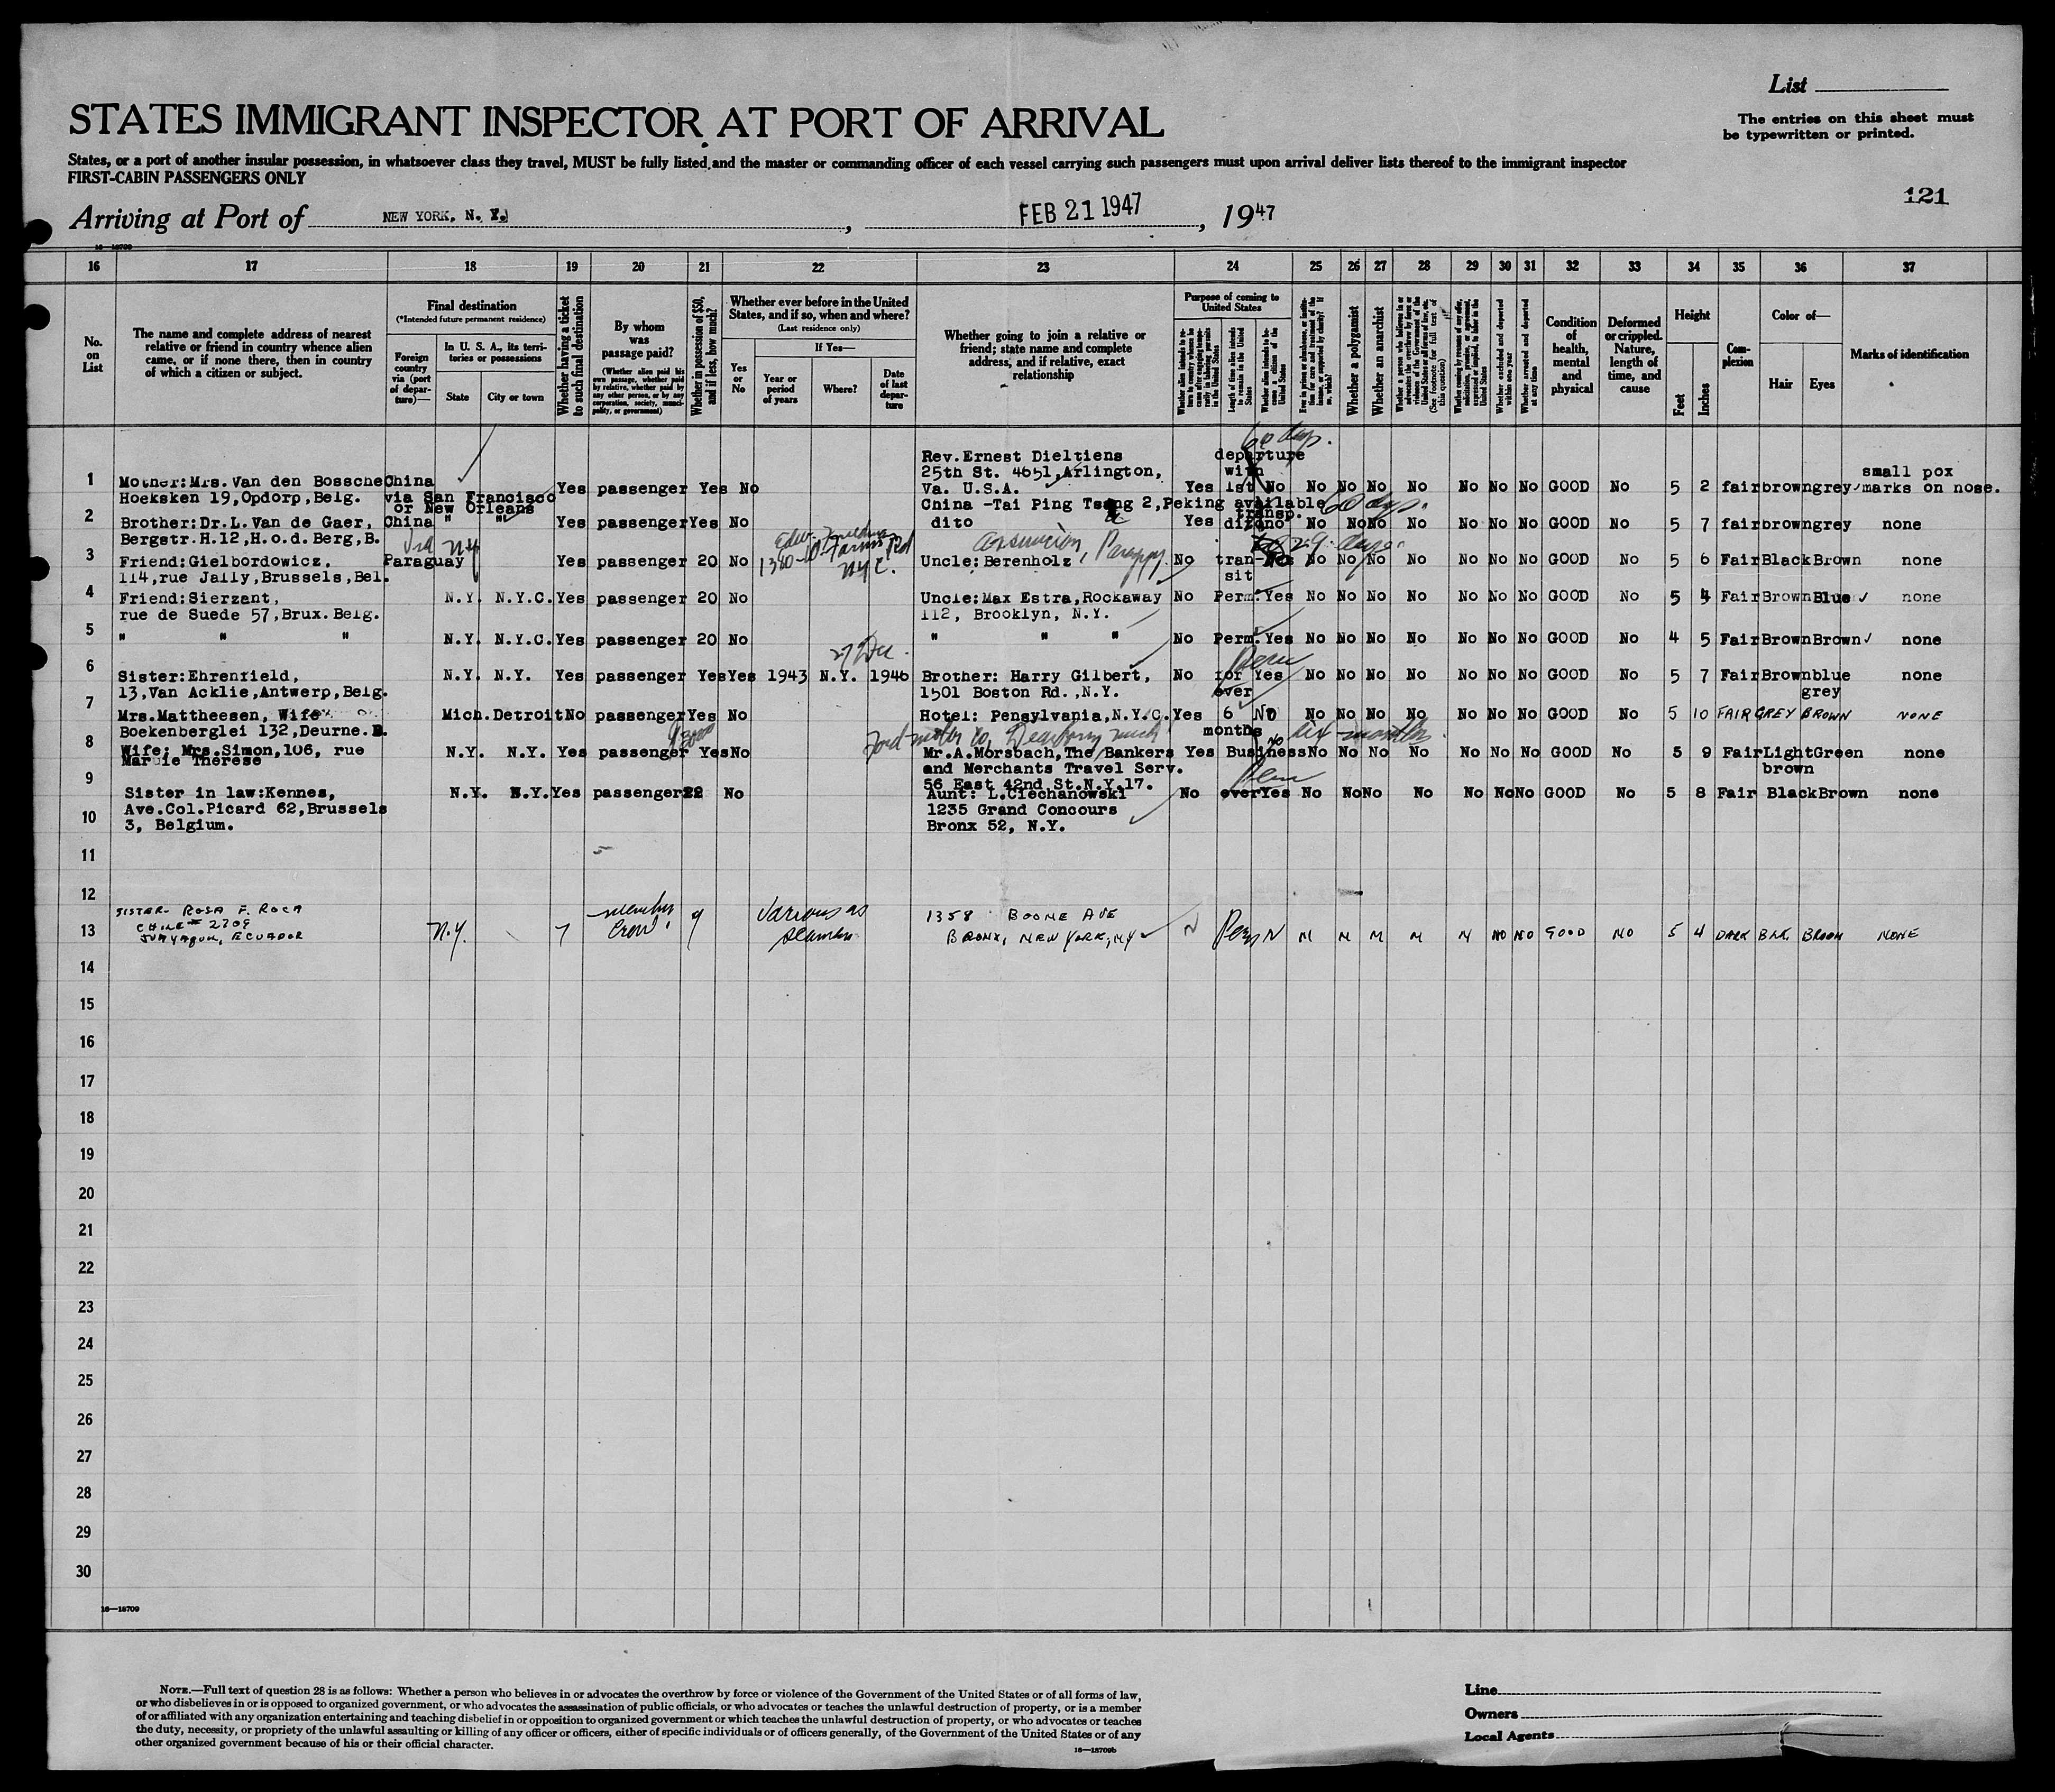 List
STATES IMMIGRANT INSPECTOR AT PORT OF ARRIVAL
The entries on this sheet must
be typewritten or printed.
States, or a port of another insular possession, in whatsoever class they travel, MUST be fully listed, and the master or commanding officer of each vessel carrying such passengers must upon arrival deliver lists thereof to the immigrant inspector
FIRST-CABIN PASSENGERS ONLY
121
Arriving at Port of NEW YORK, N. Y. , FEB 21 1947 , 1947
16—18709
16 17 18 19 20 21 22 23 24 25 26 27 28 29 30 31 32 33 34 35 36 37
No. on List
The name and complete address of nearest relative or friend in country whence alien came, or if none there, then in country of which a citizen or subject.
Final destination
(*Intended future permanent residence)
Foreign country via (port of departure)—
In U. S. A., its territories or possessions
State
City or town
Whether having a ticket to such final destination
By whom was passage paid?
(Whether alien paid his own passage, whether paid by relative, whether paid by any other person, or by any corporation, society, municipality, or government)
Whether in possession of $50, and if less, how much?
Whether ever before in the United States, and if so, when and where?
(Last residence only)
Yes or No
If Yes—
Year or period of years
Where?
Date of last departure
Whether going to join a relative or friend; state name and complete address, and if relative, exact relationship
Purpose of coming to United States
Length of time alien intends to remain in the United States
Whether alien intends to become a citizen of the United States
Whether a polygamist
Whether an anarchist
(See footnote for full text of this question)
Whether excluded and deported within one year
Whether arrested and deported at any time
Condition of health, mental and physical
Deformed or crippled. Nature, length of time, and cause
Height
Feet
Inches
Complexion
Color of—
Hair
Eyes
Marks of identification
60 days.
Rev.Ernest Dieltiens departure
25th St. 4651,Arlington, with small pox
1 Mother:Mrs. Van den Bossche China Yes passenger Yes No Va. U.S.A. Yes 1st No No No No No No No No GOOD No 5 2 fair brown grey marks on nose.
Hoeksken 19,Opdorp,Belg. via San Francisco China -Tai Ping Tsang 2,Peking available
or New Orleans transp. 60 days.
2 Brother:Dr.L.Van de Gaer, China " " Yes passenger Yes No dito Yes dito no No No No No No No No GOOD No 5 7 fair brown grey none
Bergstr.H.12,H.o.d.Berg,B.
3 Friend:Gielbordowicz, Paraguay Yes passenger 20 No Uncle:Berenholz, Paraguay No tran- No No No No No No No GOOD No 5 6 Fair Black Brown none
114,rue Jally,Brussels,Bel. sit
4 Friend:Sierzant, N.Y. N.Y.C. Yes passenger 20 No Uncle:Max Estra,Rockaway No Perm. Yes No No No No No No No GOOD No 5 4 Fair Brown Blue none
rue de Suede 57,Brux.Belg. 112, Brooklyn, N.Y.
5 " " " N.Y. N.Y.C. Yes passenger 20 No " " " No Perm. Yes No No No No No No No GOOD No 4 5 Fair Brown Brown none
27 Dec.
6 Sister:Ehrenfield, N.Y. N.Y. Yes passenger Yes Yes 1943 N.Y. 1946 Brother: Harry Gilbert, No for Yes No No No No No No No GOOD No 5 7 Fair Brown blue none
13,Van Acklie,Antwerp,Belg. 1501 Boston Rd.,N.Y. ever grey
7 Mrs.Mattheesen, Wife Mich. Detroit No passenger Yes No Hotel: Pensylvania,N.Y.C. Yes 6 No No No No No No No No GOOD No 5 10 FAIR GREY BROWN NONE
Boekenberglei 132,Deurne.B. Ford motor Co, Dearborn Mich months six months
8 Wife: Mrs.Simon,106, rue N.Y. N.Y. Yes passenger Yes No Mr.A.Morsbach,The Bankers Yes Business No No No No No No No No GOOD No 5 9 Fair Light Green none
Marie Therese and Merchants Travel Serv. brown
56 East 42nd St.N.Y.17.
9 Sister in law:Kennes, N.Y. N.Y. Yes passenger No Aunt: L.Ciechanowski No ever Yes No No No No No No No GOOD No 5 8 Fair Black Brown none
Ave.Col.Picard 62,Brussels 1235 Grand Concours
10 3, Belgium. Bronx 52, N.Y.
11
12
SISTER- ROSA F. ROCA member Various as 1358 BOONE AVE
CHILE # 2309
13 GUAYAQUIL, ECUADOR N.Y. Y Crew. Y Seaman BRONX, NEW YORK, NY N Perm N N N N N N NO NO GOOD NO 5 4 DARK BLK. BROWN NONE
14
15
16
17
18
19
20
21
22
23
24
25
26
27
28
29
30
16—18709
NOTE.—Full text of question 28 is as follows: Whether a person who believes in or advocates the overthrow by force or violence of the Government of the United States or of all forms of law,
or who disbelieves in or is opposed to organized government, or who advocates the assassination of public officials, or who advocates or teaches the unlawful destruction of property, or is a member
of or affiliated with any organization entertaining and teaching disbelief in or opposition to organized government or which teaches the unlawful destruction of property, or who advocates or teaches
the duty, necessity, or propriety of the unlawful assaulting or killing of any officer or officers, either of specific individuals or of officers generally, of the Government of the United States or of any
other organized government because of his or their official character.
16—18709b
Line
Owners
Local Agents